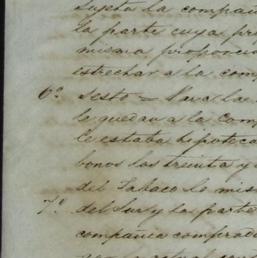 sujeta la compañ
la parte cuya pr
misma proporcio
estrechar a la com
6º Sesto = Para la
le quedan a la Comp
le estaba hipoteca
bonos los treinta y
del Tabaco de mis
7º del Sur y la parte
compañia comprado